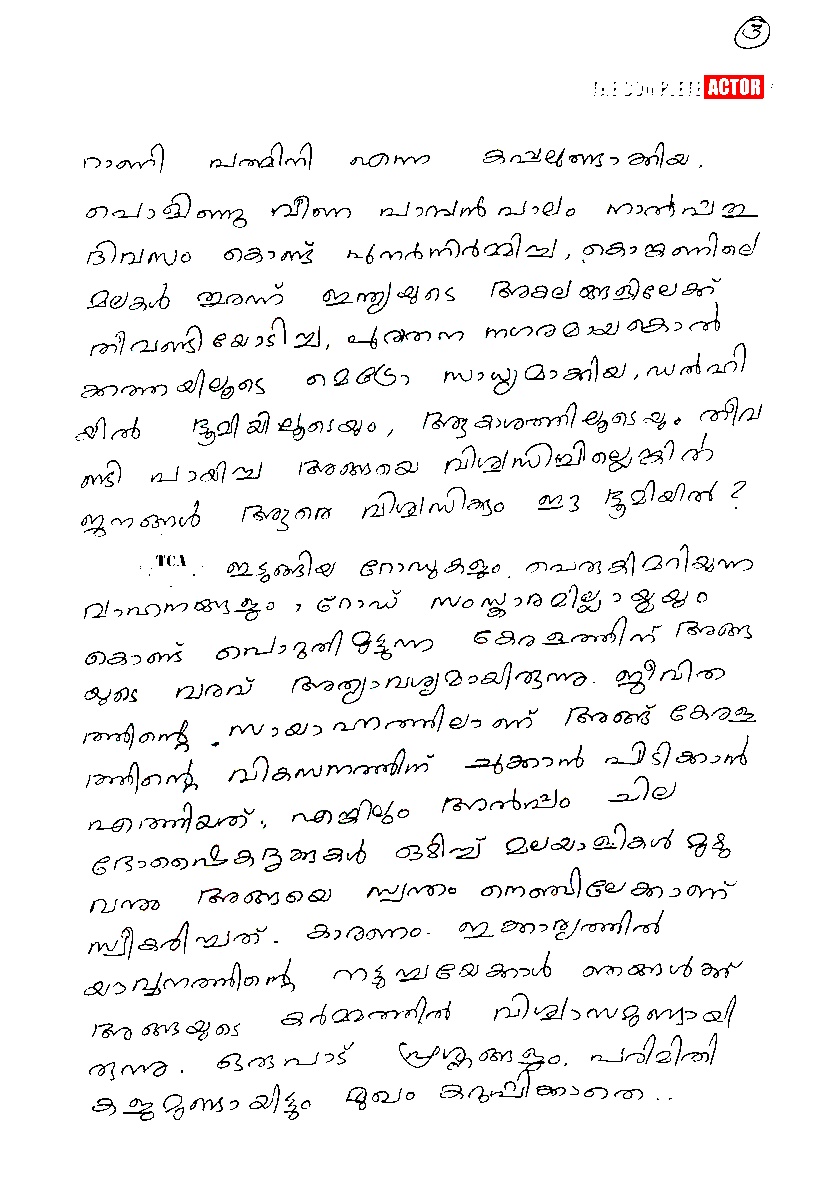 ③
THE COMPLETE ACTOR
റാണി പത്മിനി എന്ന കപ്പലുണ്ടാക്കിയ,
പൊളിഞ്ഞു വീണ പാമ്പൻ പാലം നാൽപ്പത്തഞ്ചു
ദിവസം കൊണ്ട് പുനർനിർമ്മിച്ച, കൊങ്കണിലെ
മലകൾ തുരന്ന് ഇന്ത്യയുടെ അകലങ്ങളിലേക്ക്
തീവണ്ടിയോടിച്ച, പുരാതന നഗരമായ കൊൽ
ക്കത്തയിലൂടെ മെട്രോ സാധ്യമാക്കിയ, ഡൽഹി
യിൽ ഭൂമിയിലൂടെയും, ആകാശത്തിലൂടെയും തീവ
ണ്ടി പായിച്ച അങ്ങയെ വിശ്വസിച്ചില്ലെങ്കിൽ
ജനങ്ങൾ ആരെ വിശ്വസിക്കും ഈ ഭൂമിയിൽ ?
TCA ഇടുങ്ങിയ റോഡുകളും, പെരുകിമറിയുന്ന
വാഹനങ്ങളും, റോഡ് സംസ്ക്കാരമില്ലായ്മയും
കൊണ്ട് പൊറുതിമുട്ടുന്ന കേരളത്തിന് അങ്ങ
യുടെ വരവ് അത്യാവശ്യമായിരുന്നു. ജീവിത
ത്തിന്റെ സായാഹ്നത്തിലാണ് അങ്ങ് കേരള
ത്തിന്റെ വികസനത്തിന് ചുക്കാൻ പിടിക്കാൻ
എത്തിയത്, എങ്കിലും അൽപ്പം ചില
ദോഷൈകദൃക്കുകൾ ഒഴിച്ച് മലയാളികൾ മുഴു
വനും അങ്ങയെ സ്വന്തം നെഞ്ചിലേക്കാണ്
സ്വീകരിച്ചത്. കാരണം. ഇക്കാര്യത്തിൽ
യൗവ്വനത്തിന്റെ നട്ടുച്ചയേക്കാൾ ഞങ്ങൾക്ക്
അങ്ങയുടെ കർമ്മത്തിൽ വിശ്വാസമുണ്ടായി
രുന്നു. ഒരുപാട് പ്രശ്നങ്ങളും, പരിമിതി
കളുമുണ്ടായിട്ടും മുഖം കറുപ്പിക്കാതെ..